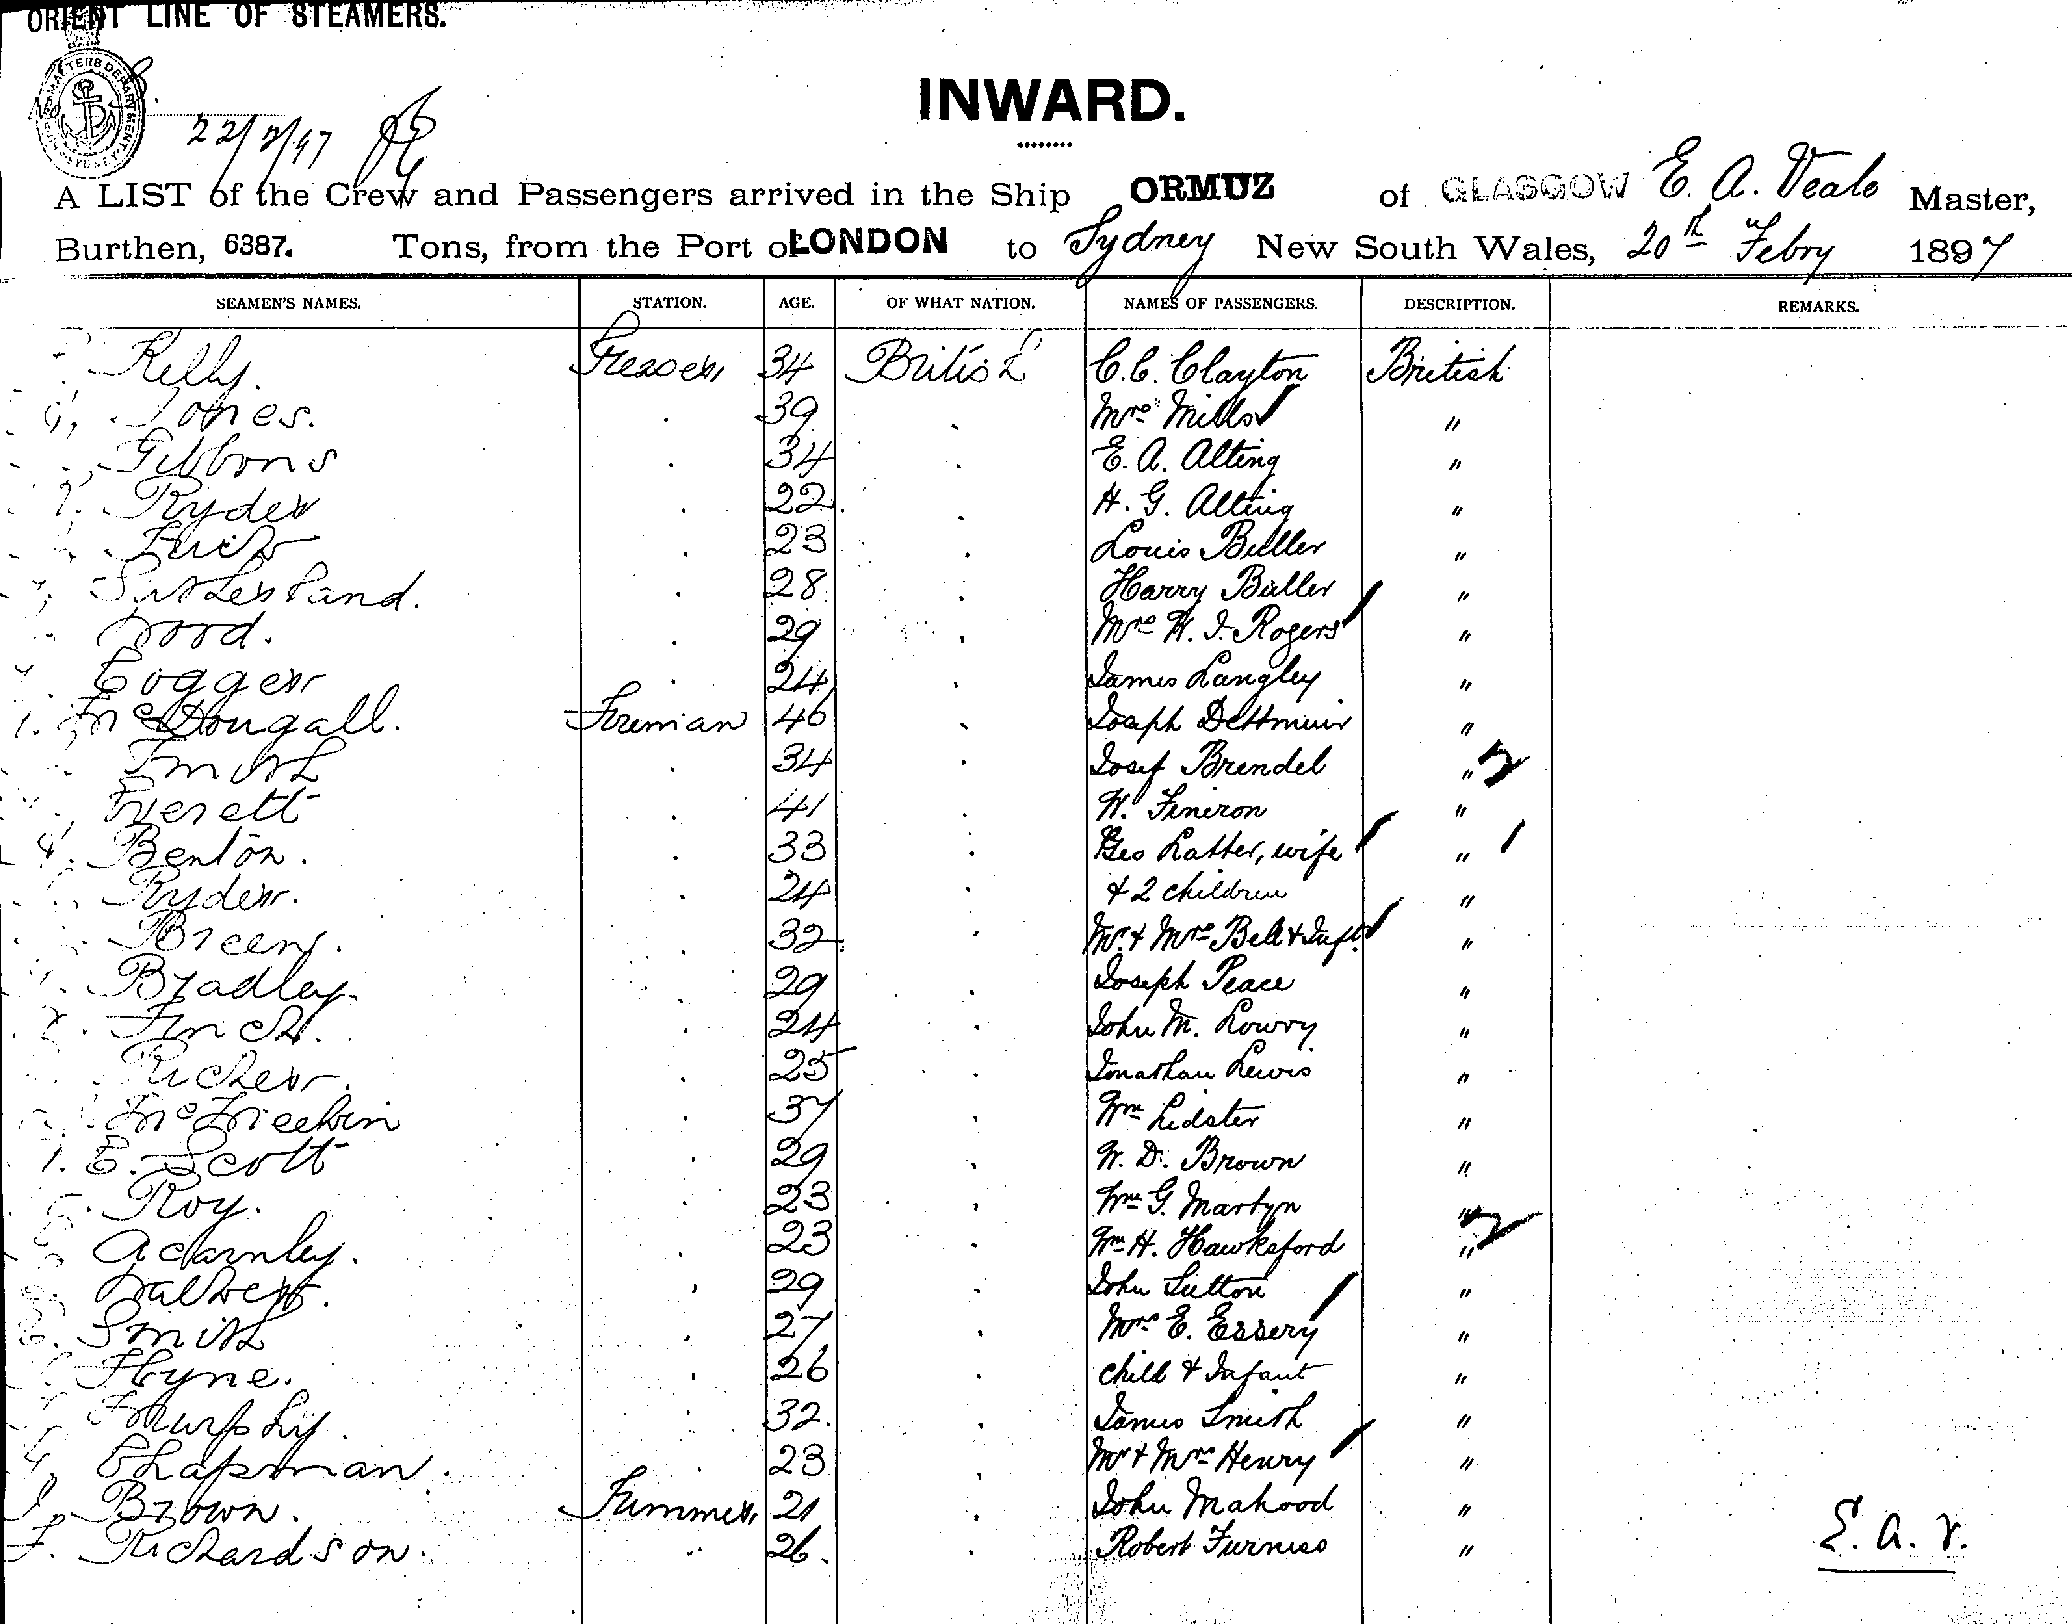 ORIENT LINE OF STEAMERS.
INWARD.
22/2/97
A LIST of the Crew and Passengers arrived in the Ship ORMUZ of GLASGOW E. A. Veale Master,
Burthen, 6387. Tons, from the Port of LONDON to Sydney New South Wales, 20th Febry 1897
SEAMEN'S NAMES. STATION. AGE. OF WHAT NATION. NAMES OF PASSENGERS. DESCRIPTION. REMARKS.
Kelly. Greaser 34 British C. C. Clayton British
Jones. . 39 . Mrs Mills "
Gibbons . 34 . E. A. Alting "
Ryder . 22 . H. G. Alting "
. 23 . Louis Buller "
Sutherland. . 28 . Harry Buller "
Wood. . 29 . Mrs W. J. Rogers "
Cogger . 24 . James Langley "
McDougall. Fireman 46 . Joseph Dettmuir "
Smith . 34 . Josef Brendel " 2
Everett . 41 . W. Fineron "
Benton. . 33 . Geo Latter, wife " 1
Ryder. . 24 . & 2 children "
Breeny. . 32 . Mr & Mrs Bell & Inft. "
Bradley. . 29 . Joseph Peace "
Finch. . 24 . John M. Lowry "
Richer. . 25 . Jonathan Lewis "
. 37 . Wm Lidster "
E. Scott . 29 . W. D. Brown "
Roy. . 23 . Wm G. Martyn "
. 23 . Wm H. Hawksford " 2
. 29 . John Sutton "
Smith . 27 . Mrs E. Essery "
Hyne. . 26 . child & Infant "
Murphy. . 32. . James Smith "
Chapman. . 23 . Mr & Mrs Henry "
Brown. Trimmer 21 . John Mahood "
F. Richardson. 26. . Robert Furniss "
E. A. V.